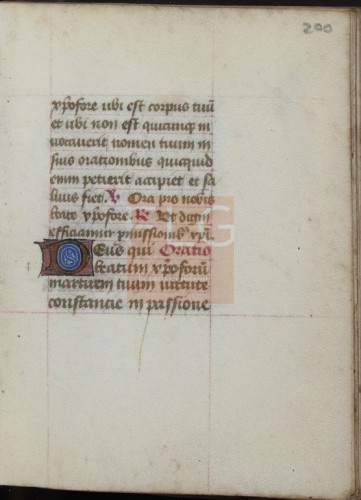 200
xp̄ofore ubi est corpus tuū
et ubi non est quicumqꝫ in
vocaverit nomen tuum in
suis orationibus quicquid
enim petierit accipiet et sa
lvus fiet. V Ora pro nobis
beate xp̄ofore. R Ut digni
efficiamur p̄missionibꝫ xp̄i.
Deus qui Oratio
beatum xp̄oforū
martirem tuum virtute
constancie in passione